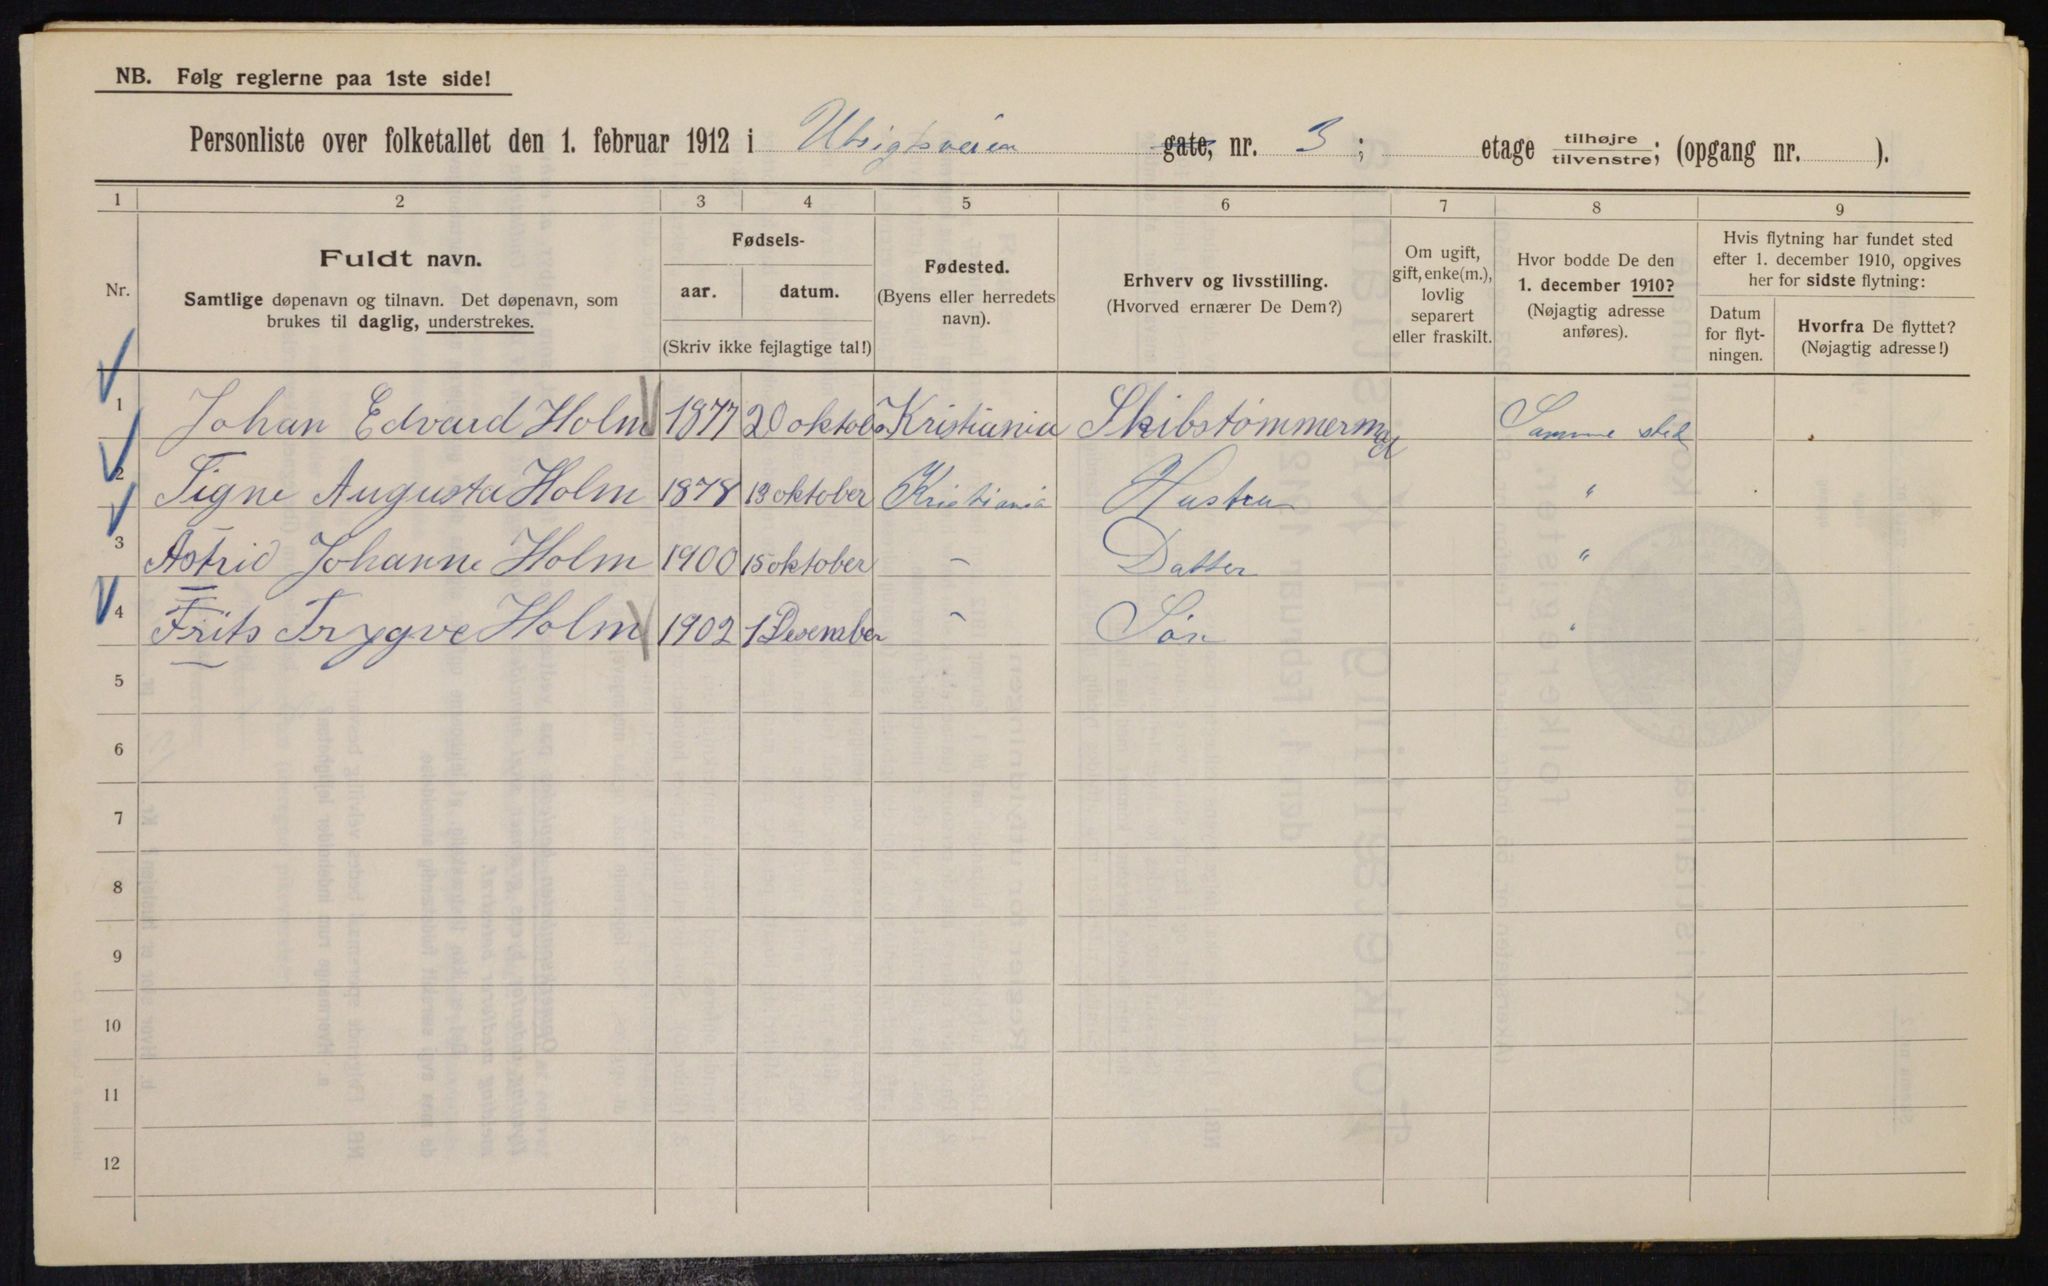 NB. Følg reglerne paa 1ste side!
Personliste over folketallet den 1. februar 1912 i Utsigtsveien gate, nr. 3; etage tilhøjre/tilvenstre; (opgang nr. ).
1 2 3 4 5 6 7 8 9
Nr.
Fuldt navn.
Samtlige døpenavn og tilnavn. Det døpenavn, som
brukes til daglig, understrekes.
Fødsels-
aar. datum.
(Skriv ikke fejlagtige tal!)
Fødested.
(Byens eller herredets
navn).
Erhverv og livsstilling.
(Hvorved ernærer De Dem?)
Om ugift,
gift, enke(m.),
lovlig
separert
eller fraskilt.
Hvor bodde De den
1. december 1910?
(Nøjagtig adresse
anføres).
Hvis flytning har fundet sted
efter 1. december 1910, opgives
her for sidste flytning:
Datum
for flyt-
ningen.
Hvorfra De flyttet?
(Nøjagtig adresse!)
1 Johan Edvard Holm 1877 20 oktober Kristiania Skibstømmermand Samme sted
2 Signe Augusta Holm 1878 13 oktober Kristiania Hustru "
3 Astrid Johanne Holm 1900 15 oktober - Datter "
4 Frits Trygve Holm 1902 1 Desember - Søn "
5
6
7
8
9
10
11
12